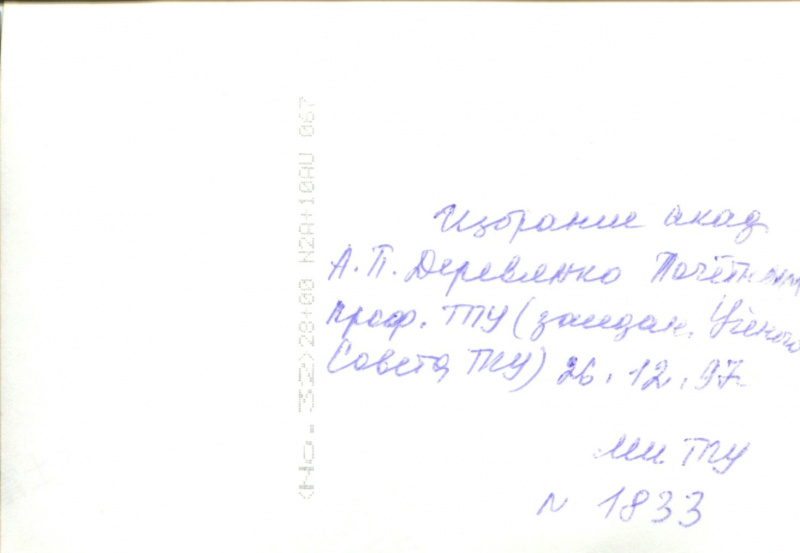 Избрание акад
А.П. Деревянко Почётным
проф. ТГУ (заседан. Ученого
Совета ТГУ) 26.12.97
МИ ТГУ
N 1833
<No. 32>28+00 N2A+10AU 067